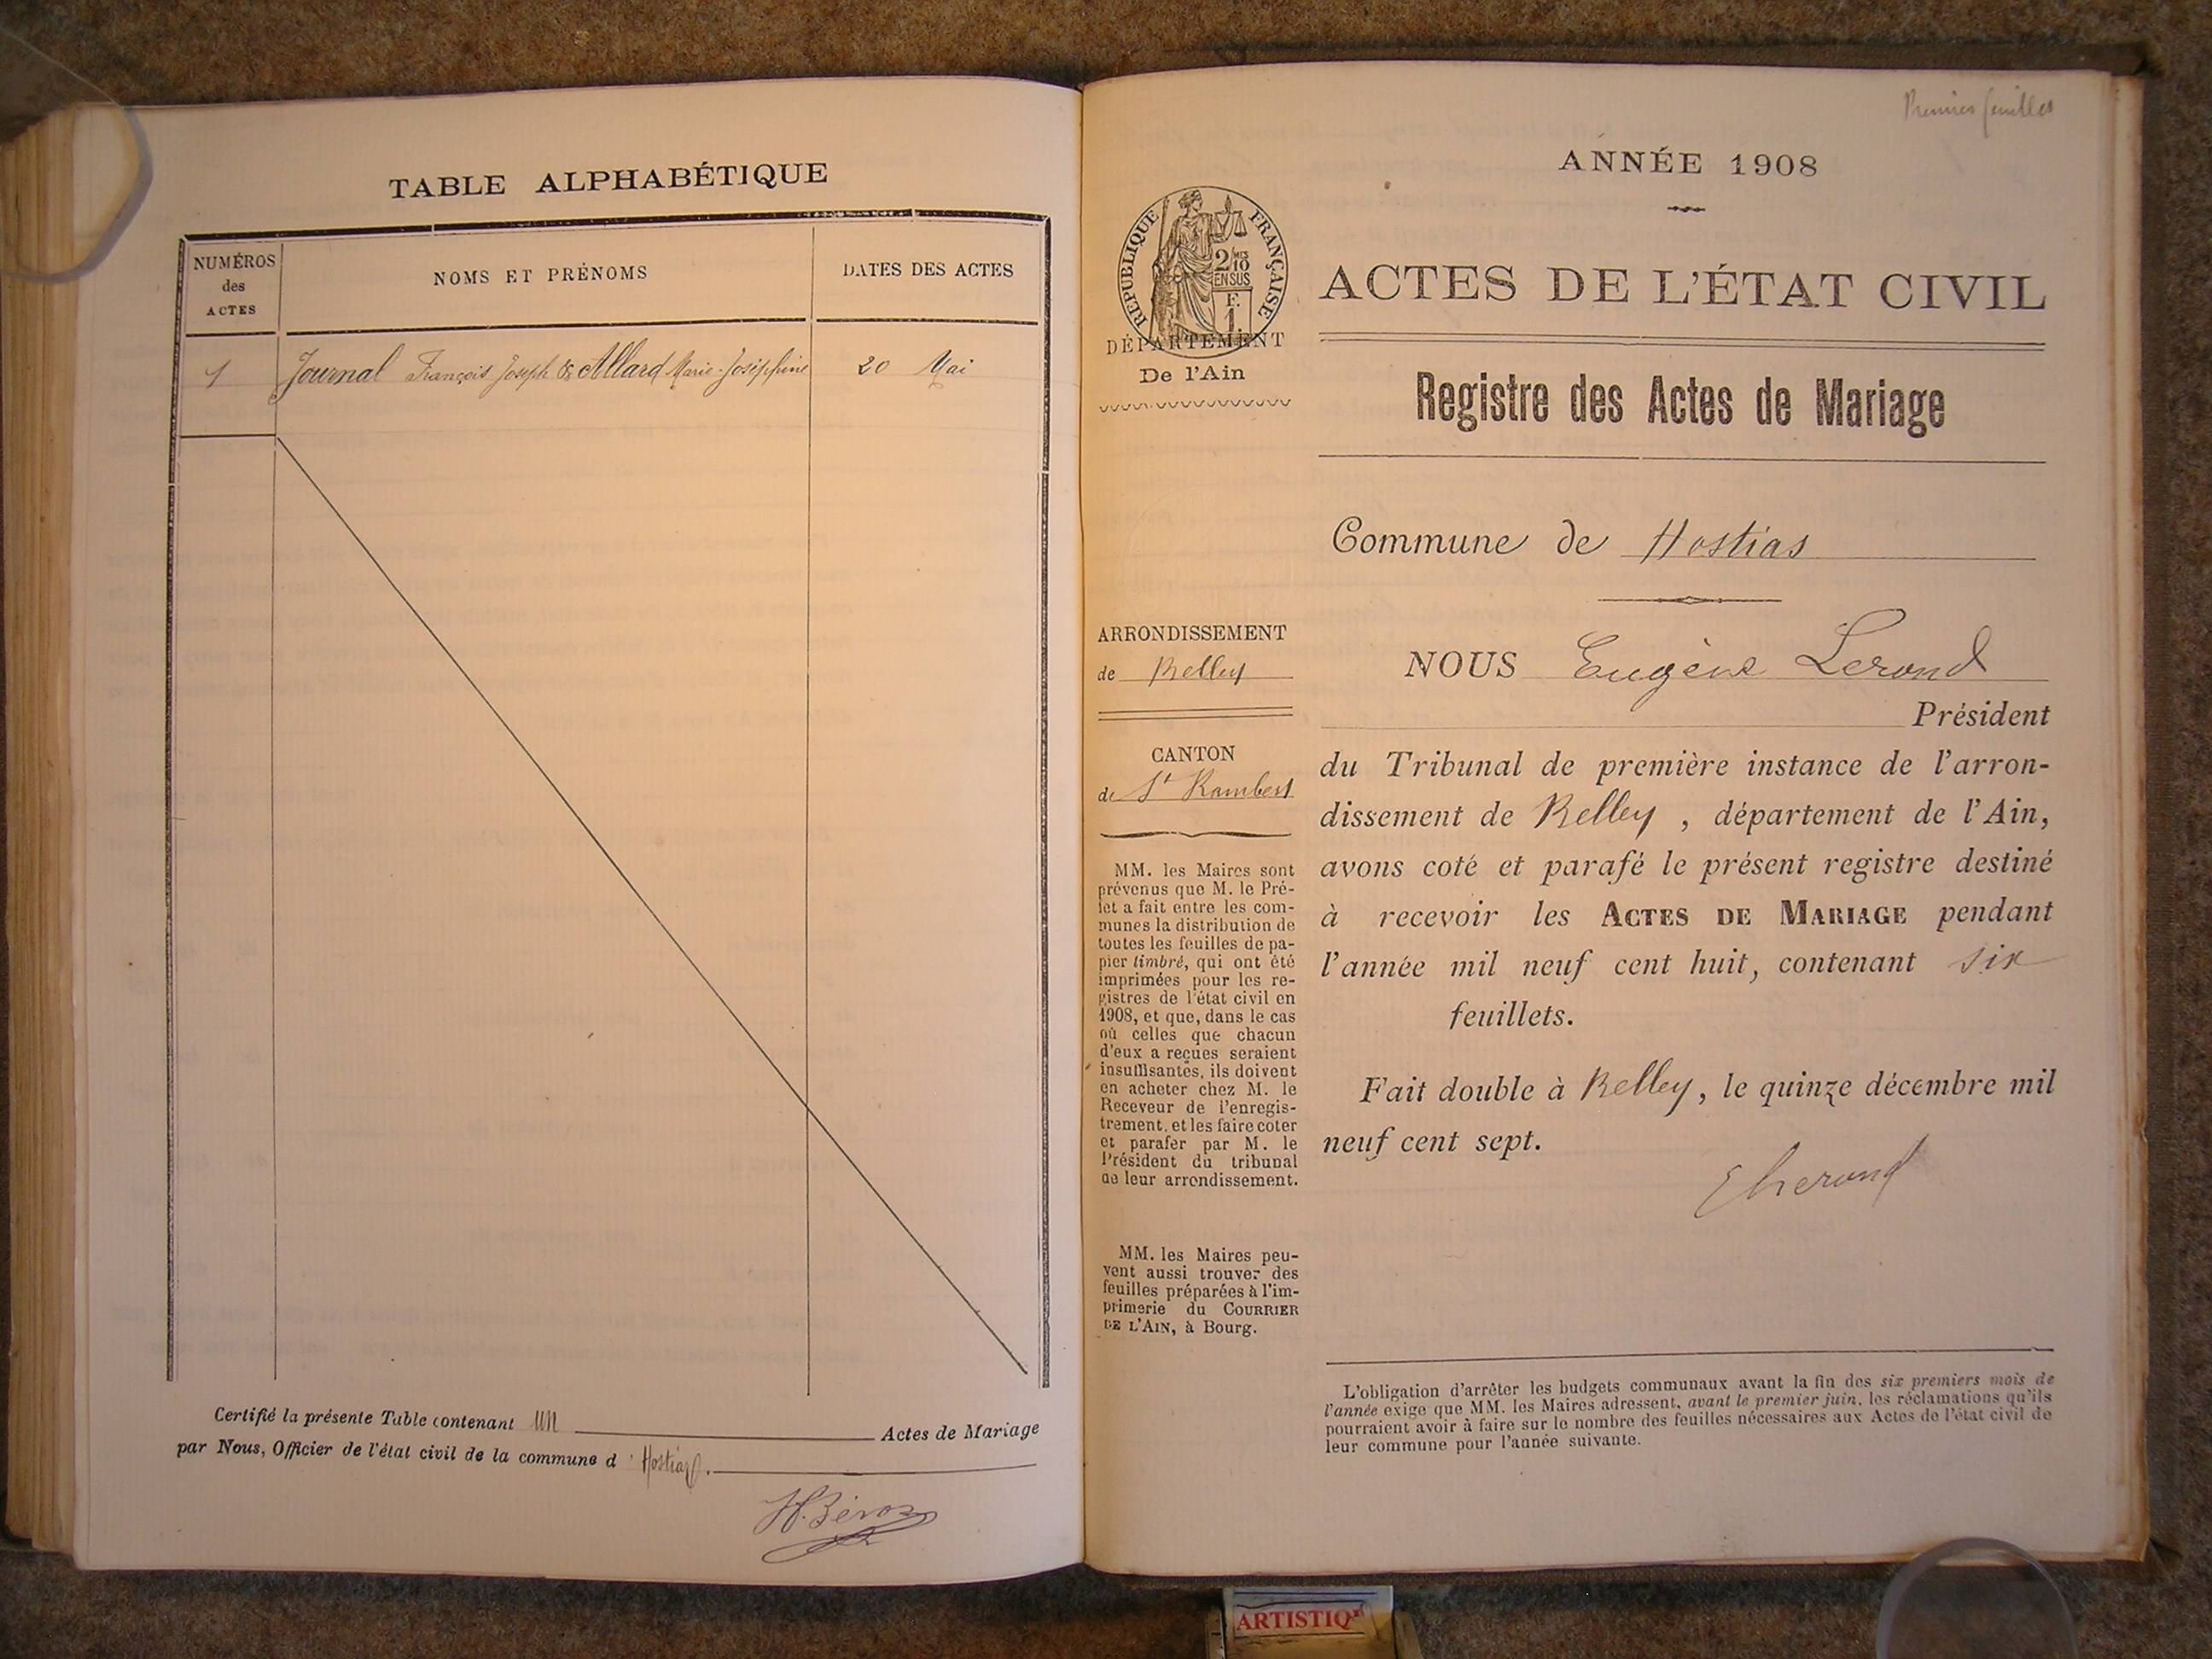 TABLE ALPHABÉTIQUE
NUMÉROS
des
ACTES
NOMS ET PRÉNOMS
DATES DES ACTES
1 Journal François Joseph & Allard Marie-Joséphine 20 Mai
Certifié la présente Table contenant un Actes de Mariage
par Nous, Officier de l'état civil de la commune d'Hostias.
H. Béroz
Premier feuillet
ANNÉE 1908
RÉPUBLIQUE FRANÇAISE
2/10 MES
EN SUS
F.
1.
DÉPARTEMENT
De l'Ain
ACTES DE L'ÉTAT CIVIL
Registre des Actes de Mariage
Commune de Hostias
ARRONDISSEMENT
de Belley
CANTON
de St Rambert
MM. les Maires sont
prévenus que M. le Pré-
fet a fait entre les com-
munes la distribution de
toutes les feuilles de pa-
pier timbré, qui ont été
imprimées pour les re-
gistres de l'état civil en
1908, et que, dans le cas
où celles que chacun
d'eux a reçues seraient
insuffisantes, ils doivent
en acheter chez M. le
Receveur de l'enregis-
trement, et les faire coter
et parafer par M. le
Président du tribunal
de leur arrondissement.
MM. les Maires peu-
vent aussi trouver des
feuilles préparées à l'im-
primerie du COURRIER
DE L'AIN, à Bourg.
NOUS Eugène Lerond
Président
du Tribunal de première instance de l'arron-
dissement de Belley, département de l'Ain,
avons coté et parafé le présent registre destiné
à recevoir les ACTES DE MARIAGE pendant
l'année mil neuf cent huit, contenant six
feuillets.
Fait double à Belley, le quinze décembre mil
neuf cent sept.
E Lerond
L'obligation d'arrêter les budgets communaux avant la fin des six premiers mois de
l'année exige que MM. les Maires adressent, avant le premier juin, les réclamations qu'ils
pourraient avoir à faire sur le nombre des feuilles nécessaires aux Actes de l'état civil de
leur commune pour l'année suivante.
ARTISTIQ